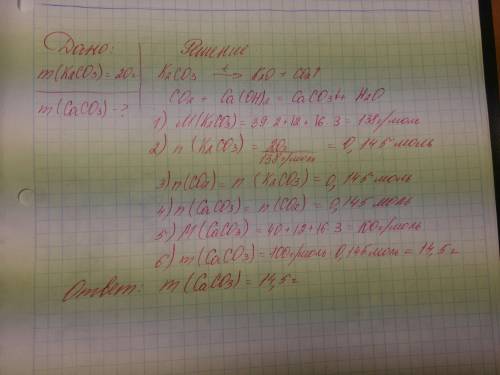 Дано: Решение
m(K2CO3)=20г K2CO3 t→ K2O + CO2↑
m(CaCO3)-? CO2 + Ca(OH)2 = CaCO3↓+ H2O
1) M(K2CO3)=39·2+12+16·3=138г/моль
2) n(K2CO3)=20г/138г/моль=0,145моль
3) n(CO2)=n(K2CO3)=0,145моль
4) n(CaCO3)=n(CO2)=0,145моль
5) M(CaCO3)=40+12+16·3=100г/моль
6) m(CaCO3)=100г/моль·0,145моль=14,5г
Ответ: m(CaCO3)=14,5г